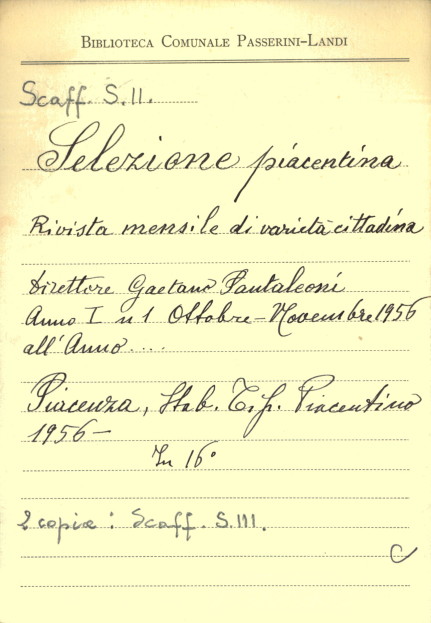 BIBLIOTECA COMUNALE PASSERINI-LANDI
Scaff. S.II.
Selezione piacentina
Rivista mensile di varietà cittadina
Direttore Gaetano Pantaleoni
Anno I n 1 Ottobre-Novembre 1956
all'Anno....
Piacenza, Stab. Tip. Piacentino
1956-
In 16°
2 copia: Scaff. S.III.
C